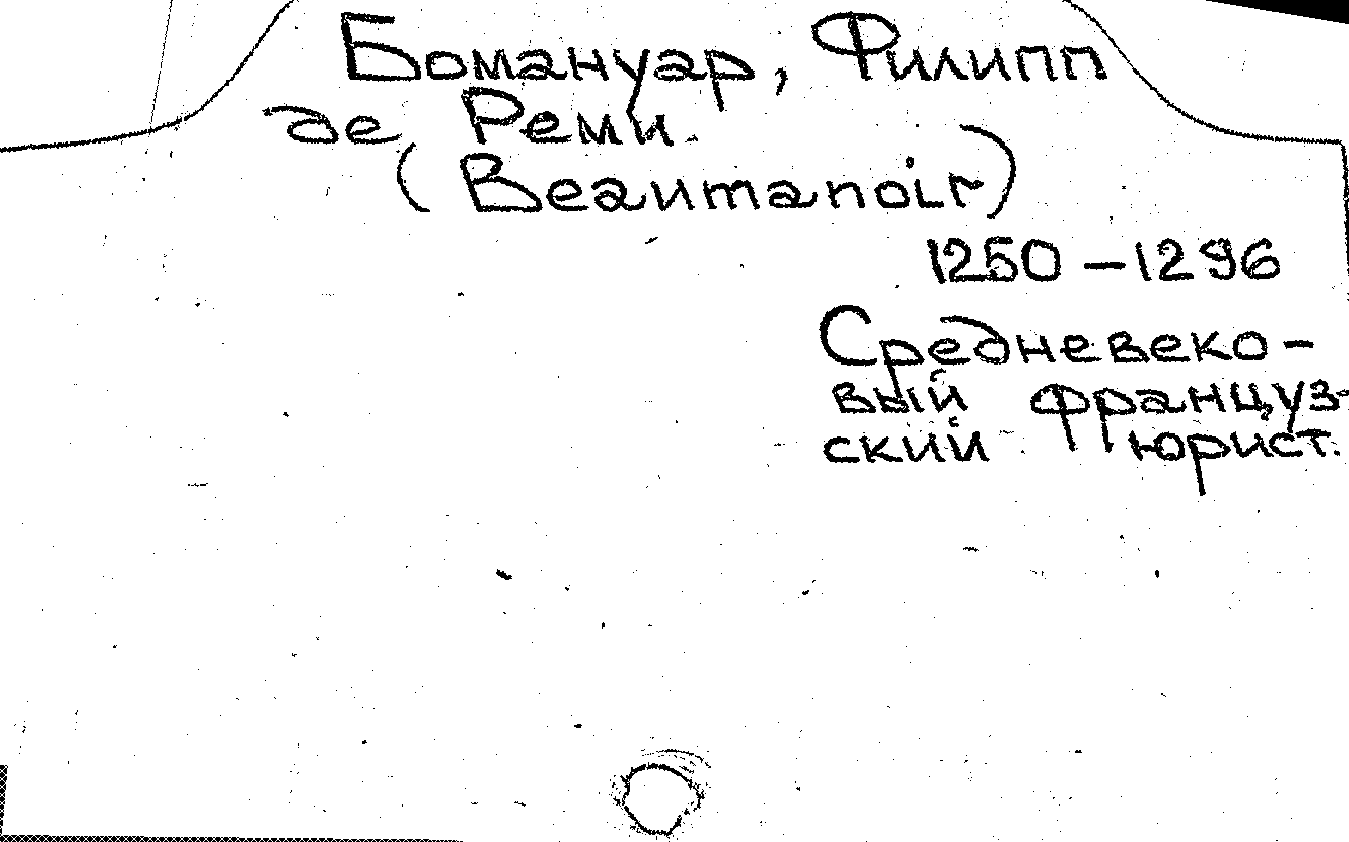 Бомануар, Филипп
де Реми.
(Beaumanoir)
1250 – 1296
Средневеко-
вый француз-
ский юрист.